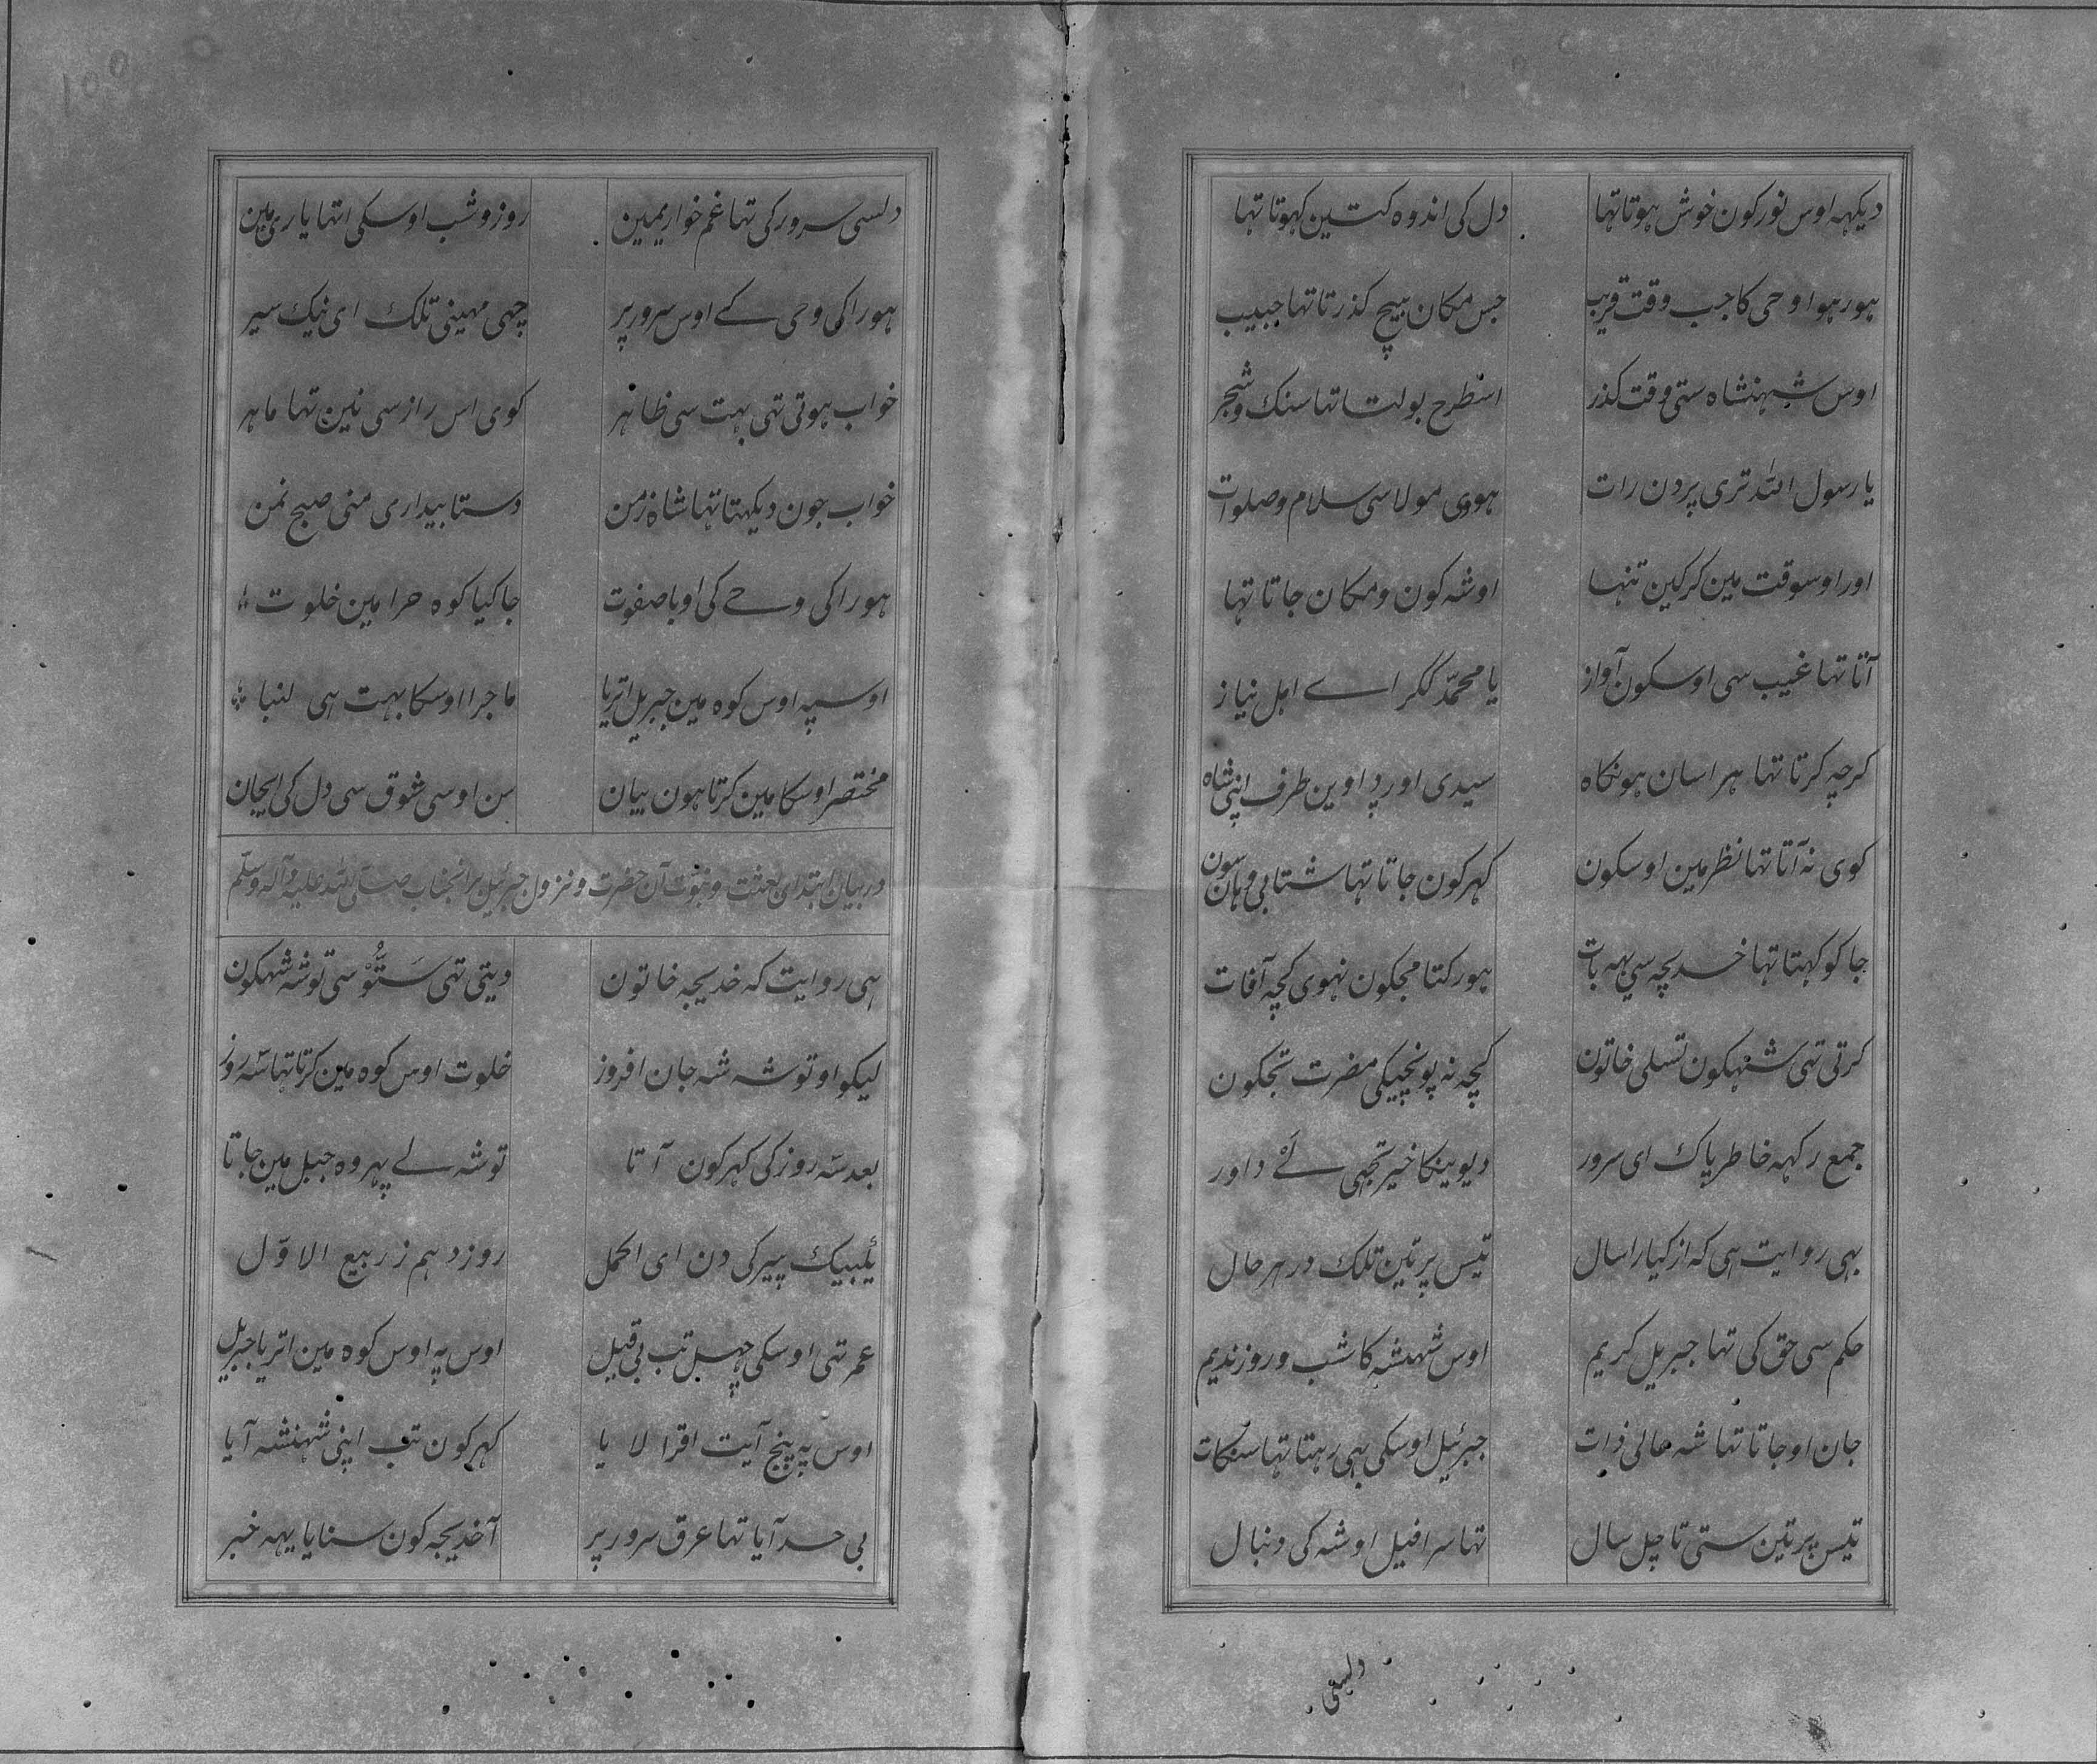 دیکهه اوس نور کون خوش ہوتا تها دل کی اندوه کتین کهوتا تها
ہور ہوا وحی کا جب وقت قریب جس مکان بیچ کذرتا تها حبیب
اوس شہنشاه ستی وقت کذر اسطرح بولتا تها سنک و شجر
یا رسول اللّٰه تری پر دن رات ہووی مولا سی سلام و صلوات
اور اوسوقت مین کر کین تنہا او شه کون و مکان جاتا تها
آتا تها غیب سی اوسکون آواز یا محمّد ککر اے اہل نیاز
کرچه کرتا تها ہراسان ہو نکاه سیدی اور داوین طرف اپنی شاه
کوی نه آتا تها نظر مین اوسکون کهر کون جاتا تها شتابی وہان سون
جا کو کہتا تها خدیجه سی یہه بات ہور کتا مجکون نہوی کچه آفات
کرتی تهی شہکون تسلی خاتون کچه نه پونچیکی مضرت تجکون
جمع رکهه خاطر پاک ای سرور دیویکا خیر تجهی لئے داور
یہی روایت ہی که از کیارا سال تیس پر تین تلک در ہر حال
حکم سی حق کی تها جبریل کریم اوس شهنشه کا شب و روز ندیم
جان او جاتا تها شه عالی ذات جبرئیل اوسکی بهی رہتا تها سنکات
تیس پر تین ستی تا چل سال تها سرافیل او شه کی دنبال
دلسی
100
دلسی سرور کی تها غم خواری مین روز و شب اوسکی اتها یاری مین
ہور اکی وحی کے اوس سرور پر چهی مہینی تلک ای نیک سیر
خواب ہوتی تهی بہت سی ظاہر کوی اس راز سی نین تها ماہر
خواب جون دیکہتا تها شاه زمن دستا بیداری منی صبح نمن
ہور اکی وحے کی او با صفوت جا کیا کوه حرا مین خلوت
اوسپه اوس کوه مین جبریل اتریا ماجرا اوسکا بہت ہی لنبا
مختصر اوسکا مین کرتا ہون بیان سن اوسی شوق سی دل کی ایجان
در بیان ابتدای بعثت و نبوت آن حضرت و نزول جبرئیل بر انجناب صلی اللّٰه علیه و آله و سلّم
ہی روایت که خدیجه خاتون دیتی تهی ستّو ستی توشه شهکون
لیکو او توشه شه جان افروز خلوت اوس کوه مین کرتا تها سه روز
بعد سه روز کی کهر کون آتا توشه لے پہر وه جبل مین جاتا
یکبیک پیر کی دن ای اکمل روز دہم ز ربیع الاوّل
عمر تهی اوسکی چہل تب بی قیل اوس په اوس کوه مین اتریا جبریل
اوس په پنج آیت اقرا لایا کهر کون تب اپنی شهنشه آیا
بی حد آیا تها عرق سرور پر آ خدیجه کون سنایا یہه خبر